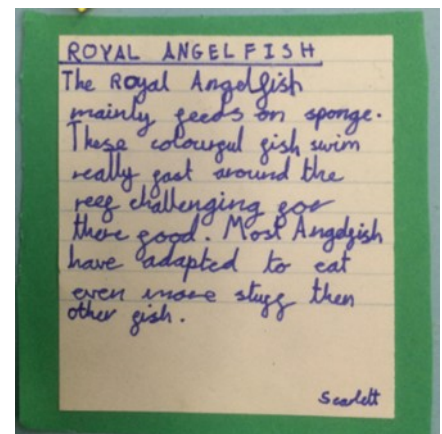 ROYAL ANGELFISH
The Royal Angelfish
mainly feeds on sponge.
These colourful fish swim
really fast around the
reef challenging for
there food. Most Angelfish
have adapted to eat
even more stuff then
other fish.
Scarlett